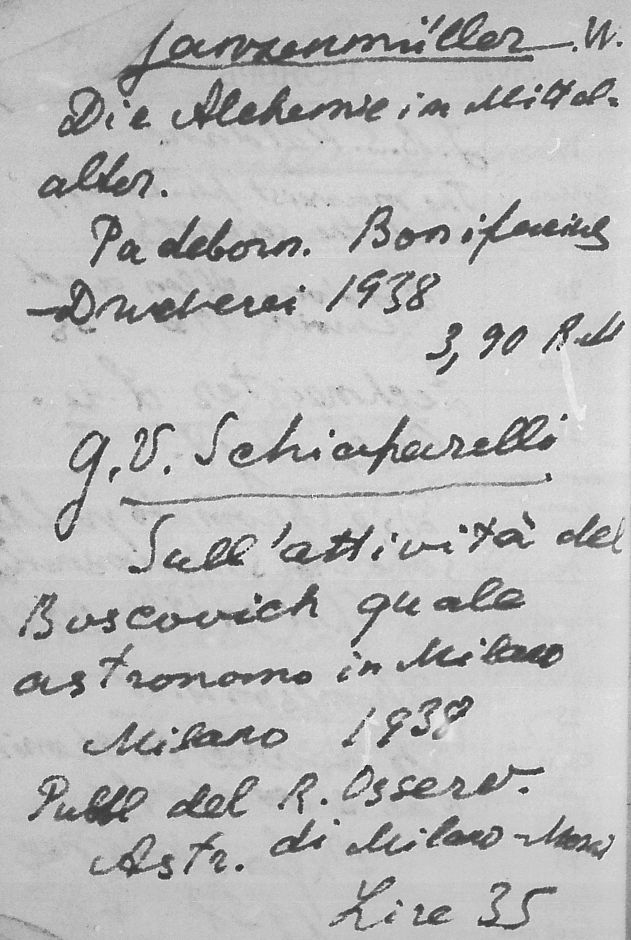 Ganzenmüller W.
Die Alchemie in Mittel-
alter.
Padeborn. Bonifacius
-Druckerei 1938
3,90 RM
G. V. Schiaparelli
Sull'attività del
Boscovich quale
astronomo in Milano
Milano 1938
Publ del R. Osserv.
Astr. di Milano-
Lire 35